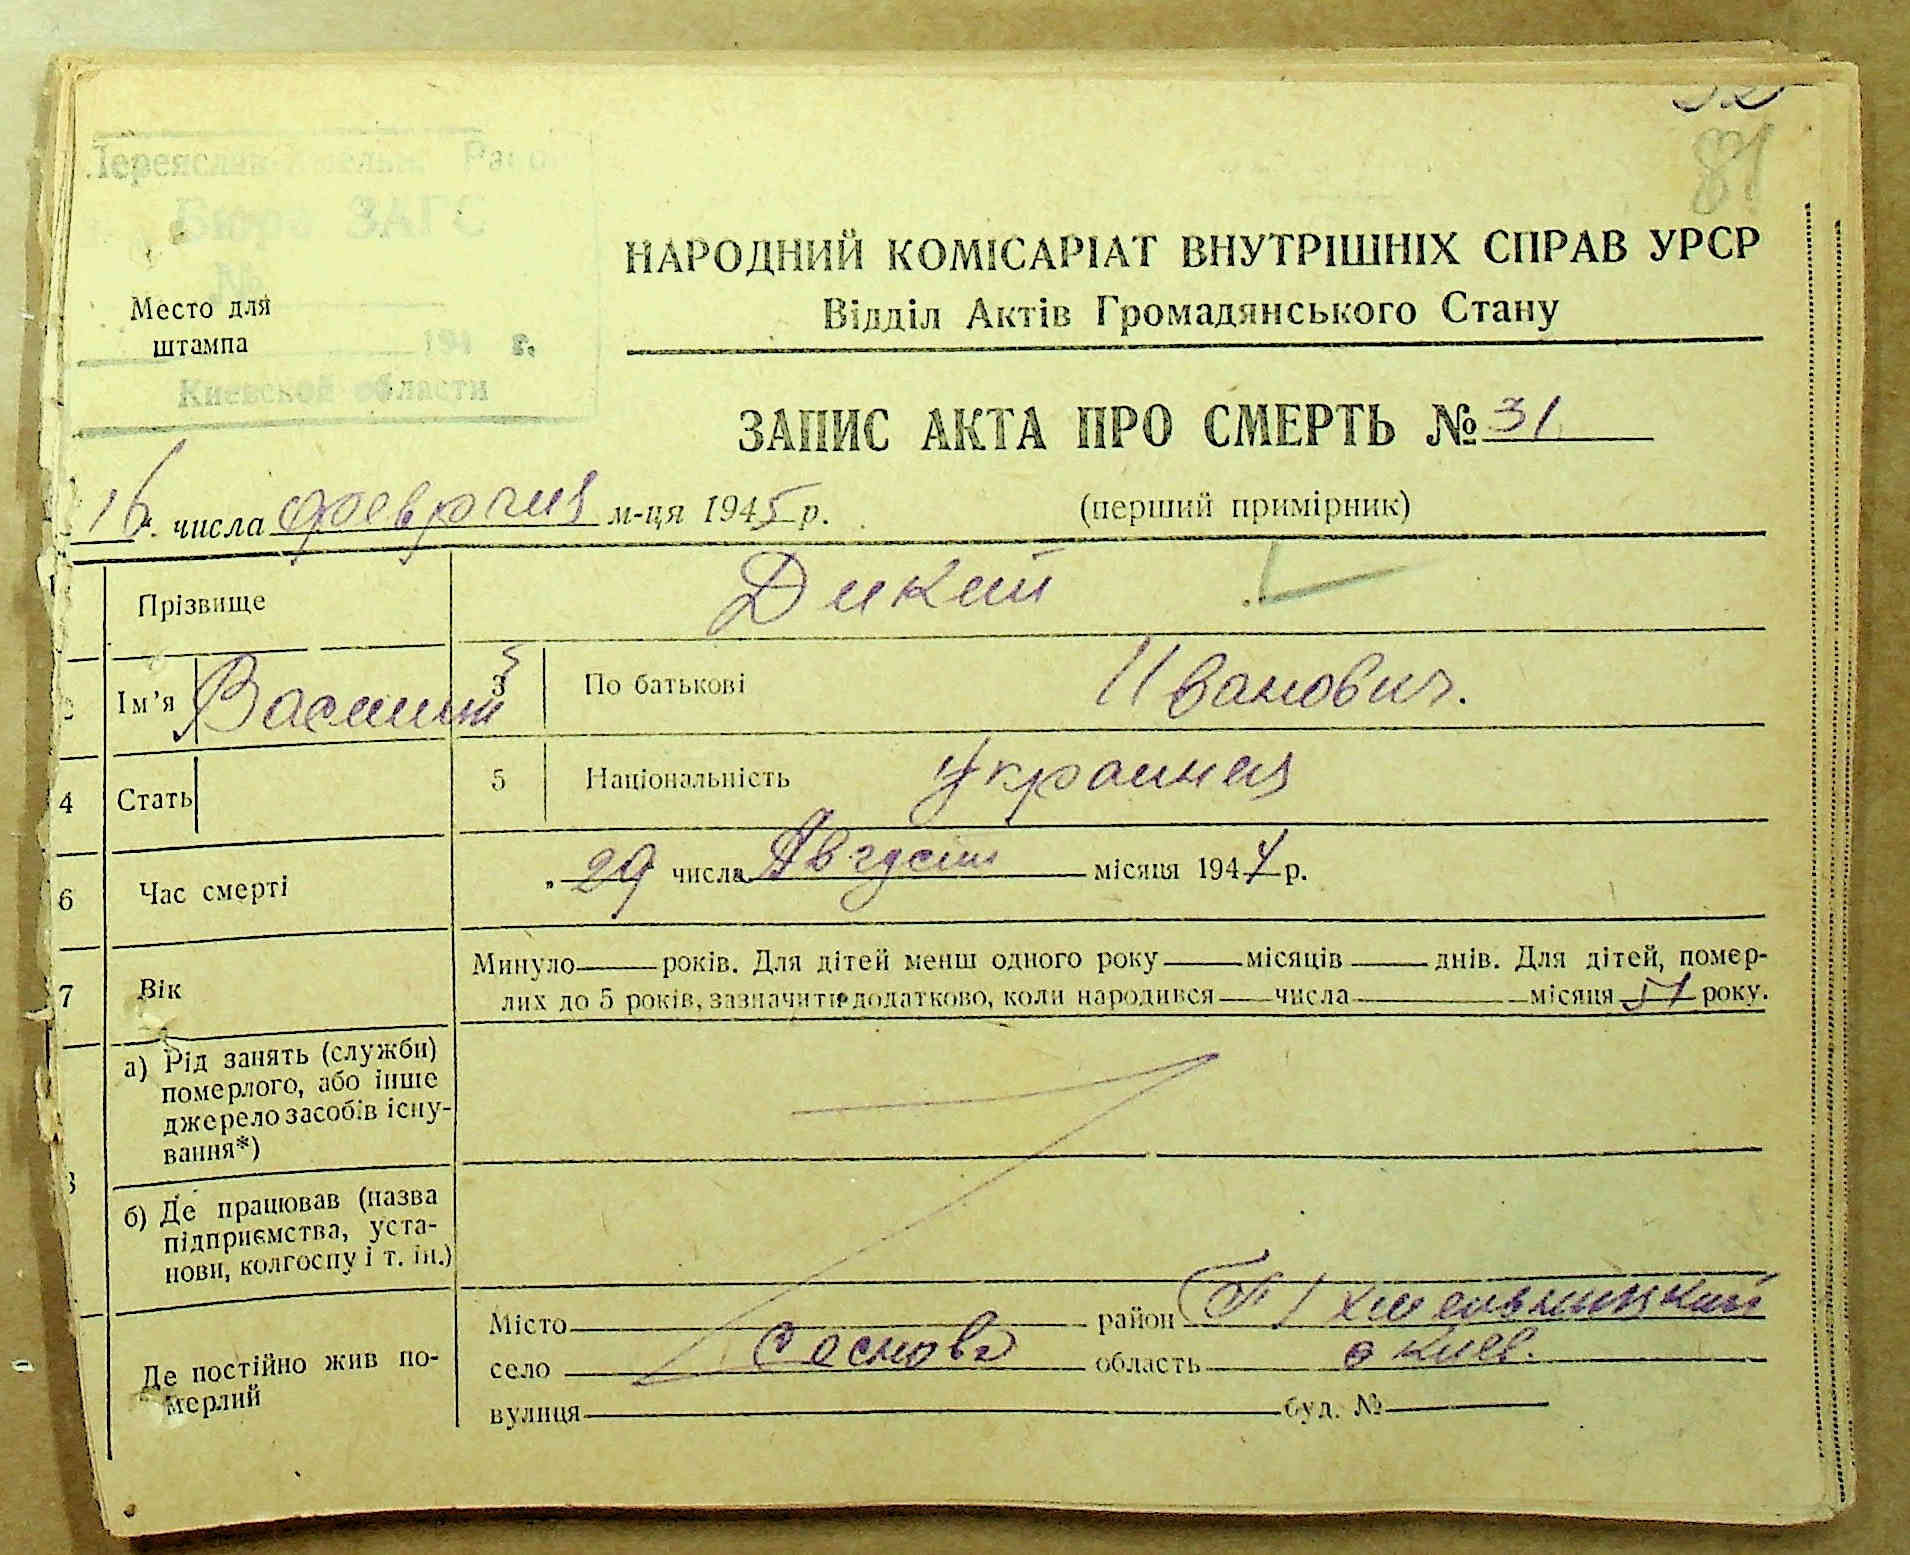 81
Бюро ЗАГС
№
194 г.
Киевской области
Место для
штампа
НАРОДНИЙ КОМІСАРІАТ ВНУТРІШНІХ СПРАВ УРСР
Відділ Актів Громадянського Стану
ЗАПИС АКТА ПРО СМЕРТЬ № 31
16 числа февраля м-ця 1945 р. (перший примірник)
Прізвище Дикий
2 Ім'я Василий 3 По батькові Иванович.
4 Стать 5 Національність Украинец
6 Час смерті „ 29 числа Август місяця 1944 р.
7 Вік Минуло років. Для дітей менш одного року місяців днів. Для дітей, помер-
лих до 5 років, зазначити додатково, коли народився числа місяця 51 року.
8 а) Рід занять (служби)
померлого, або інше
джерело засобів існу-
вання*)
б) Де працював (назва
підприємства, уста-
нови, колгоспу і т. ін.)
Де постійно жив по-
мерлий
Місто район П Хмельницкий
село Соснова область Киев.
вулиця буд. №